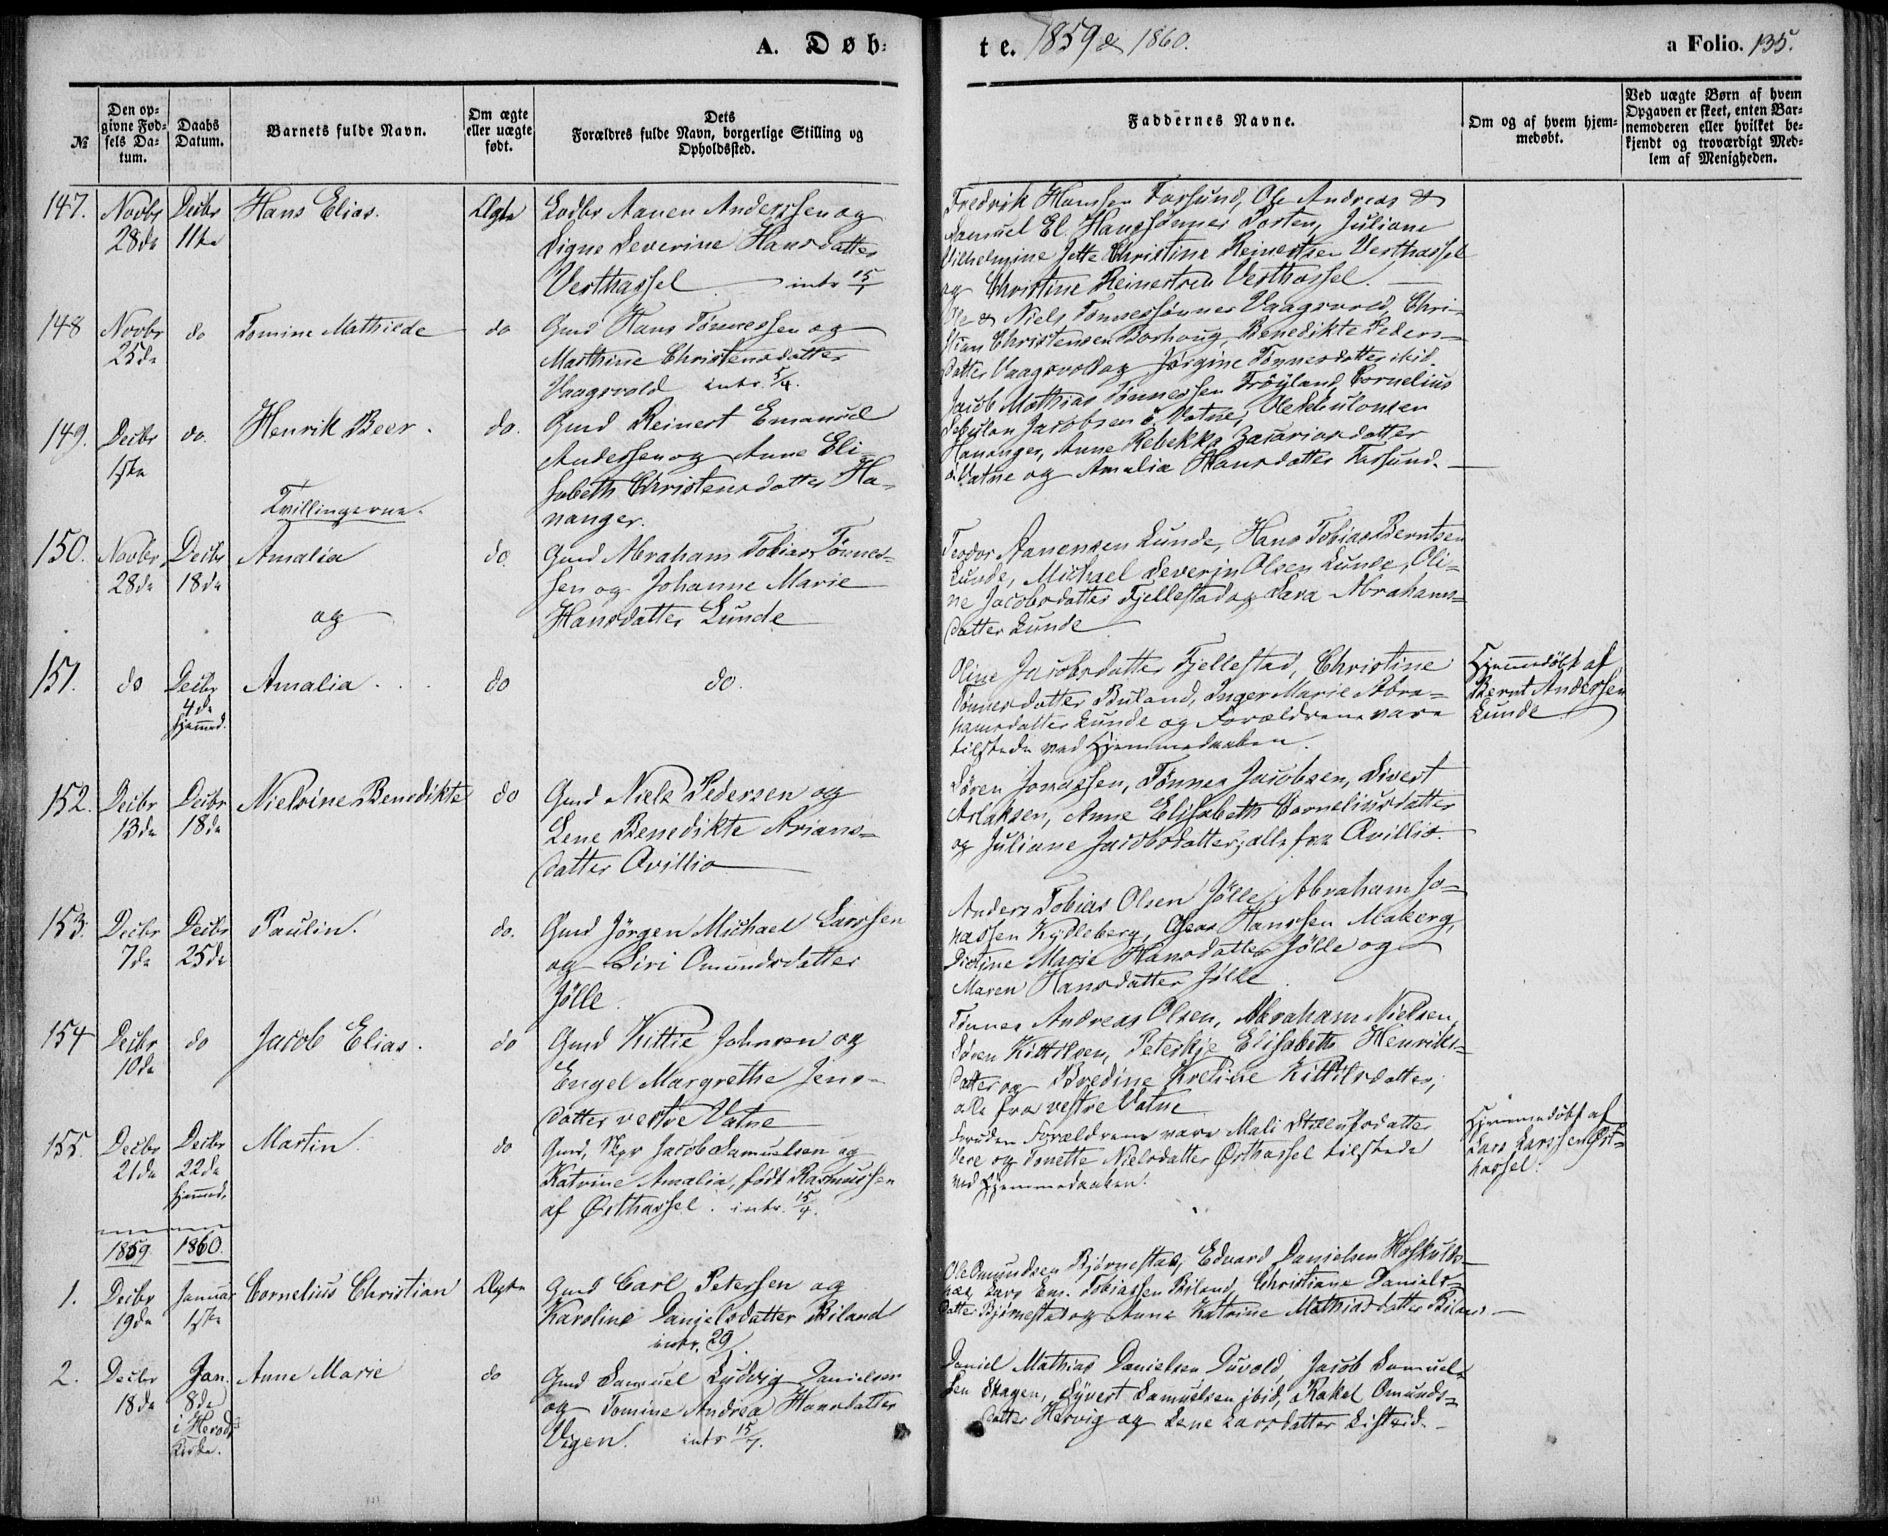 A. Døb-
te. 1859 & 1860.
a Folio. 135.
№
Den op-
givne Fød-
sels Da-
tum.
Daabs
Datum.
Barnets fulde Navn.
Om ægte
eller uægte
født.
Dets
Forældres fulde Navn, borgerlige Stilling og
Opholdssted.
Faddernes Navne.
Om og af hvem hjem-
medøbt.
Ved uægte Børn af hvem
Opgaven er skeet, enten Bar-
nemoderen eller hvilket be-
kjendt og troværdigt Med-
lem af Menigheden.
147. Novbr 28de
Decbr 11te
Hans Elias.
Ægte
Lodbr Aanen Anderssen og
Signe Severine Hansdatter
Vesthassel intr 15/1
Fredrik Hanssen Farsund, Ole Andreas &
Samuel El. Hanssønner Torsten, Juliane
Vilhelmine Jette Christine Reinertsen Vesthassel
og Christine Reinertsen Vesthassel.
148 Novbr 25de
do
Tomine Mathilde
do
Gmd Hans Tønnessen og
Marthine Christensdatter
Vaagsvold intr. 5/4.
Ole & Niels Tønnessønner Vaagsvold, Chri-
stian Christensen Borhaug, Benedikte Peders-
datter Vaagsvold og Jørgine Tønnesdatter ibid.
149. Decbr 1ste
do.
Henrik Beer.
do.
Gmd Reinert Emanuel
Anderssen og Anne Eli-
sabeth Christensdatter Ha-
nanger.
Jacob Mathias Tønnessen Frøyland, Cornelius
Jacobsen ø. Vatne,
Hananger, Anne Rebekka Zacariasdatter
ø. Vatne og Amalia Hansdatter Farsund.
Tvillingerne.
150. Novbr 28de
Decbr 18de
Amalia
og
do.
Gmd Abraham Tobias Tønnes-
sen og Johanne Marie
Hansdatter Lunde
Teodor Aanensen Lunde, Hans Tobias Berntsen
Lunde, Michael Severin Olsen Lunde, Oli-
ne Jacobsdatter Fjellestad og Sara Abrahams-
datter Lunde
151. do
Decbr 4de hjemmd.
Amalia . . .
do
do.
Oline Jacobsdatter Fjellestad, Christine
Tønnesdatter Buland, Inger Marie Abra-
hamsdatter Lunde og Forældrene vare
tilstede ved Hjemmedaaben.
Hjemmedøbt af
Bernt Andersen
Lunde
152. Decbr 13de
Decbr 18de
Nielsine Benedikte
do
Gmd Niels Pedersen og
Lene Benedikte Arians-
datter Qvillio
Søren Jonassen, Tønnes Jacobsen, Sivert
Aslaksen, Anne Elisabeth Corneliusdatter
og Juliane Jacobsdatter, alle fra Qvillio.
153. Decbr 7de
Decbr 25de
Paulin.
do.
Gmd Jørgen Michael Larssen
og Siri Omundsdatter
Jølle.
Anders Tobias Olsen Jølle, Abraham Jo-
nassen Kydleberg, Hanssen Maberg,
Marie Hansdatter Jølle og
Maren Hansdatter Jølle.
154 Decbr 10de
do
Jacob Elias.
do
Gmd Kittil Johnsen og
Engel Margrethe Jens-
datter vestre Vatne
Tønnes Andreas Olsen, Abraham Nielsen,
Søren Kittilsen, Elisabeth Henriks-
datter og Bredine Kittilsdatter,
alle fra vestre Vatne
155 Decbr 21de
Decbr 22de hjemmd.
Martin
do
Gmd, Skpr Jacob Samuelsen og
Katrine Amalia, født Rasmussen
af Østhassel. intr. 15/4.
Foruden Forældrene vare Mali
Vere og Tonette Nielsdatter Østhassel tilstede
ved Hjemmedaaben.
Hjemmedøbt af
Lars Larssen Øst-
hassel.
1859. 1860.
1. Decbr 19de
Januar 1ste
Cornelius Christian
Ægte
Gmd Carl Petersen og
Karoline Danielsdatter Biland
intr. 29/
Ole Omundsen Bjørnestad, Edvard Danielsen
Lars Em. Tobiassen Biland, Christiane Daniels-
datter Bjørnestad og Anne Katrine Mathiasdatter Biland
2. Decbr 18de
Jan. 8de i Herads Kirke.
Anne Marie
do
Gmd Samuel Ludvig Danielsen
og Tomine Andrea Hansdatter
Vigen. intr 15/7.
Daniel Mathias Danielsen Duvold, Jacob Samuel-
sen Skagen, Syvert Samuelsen ibid, Rakel Omunds-
datter Hervig og Lene Larsdatter